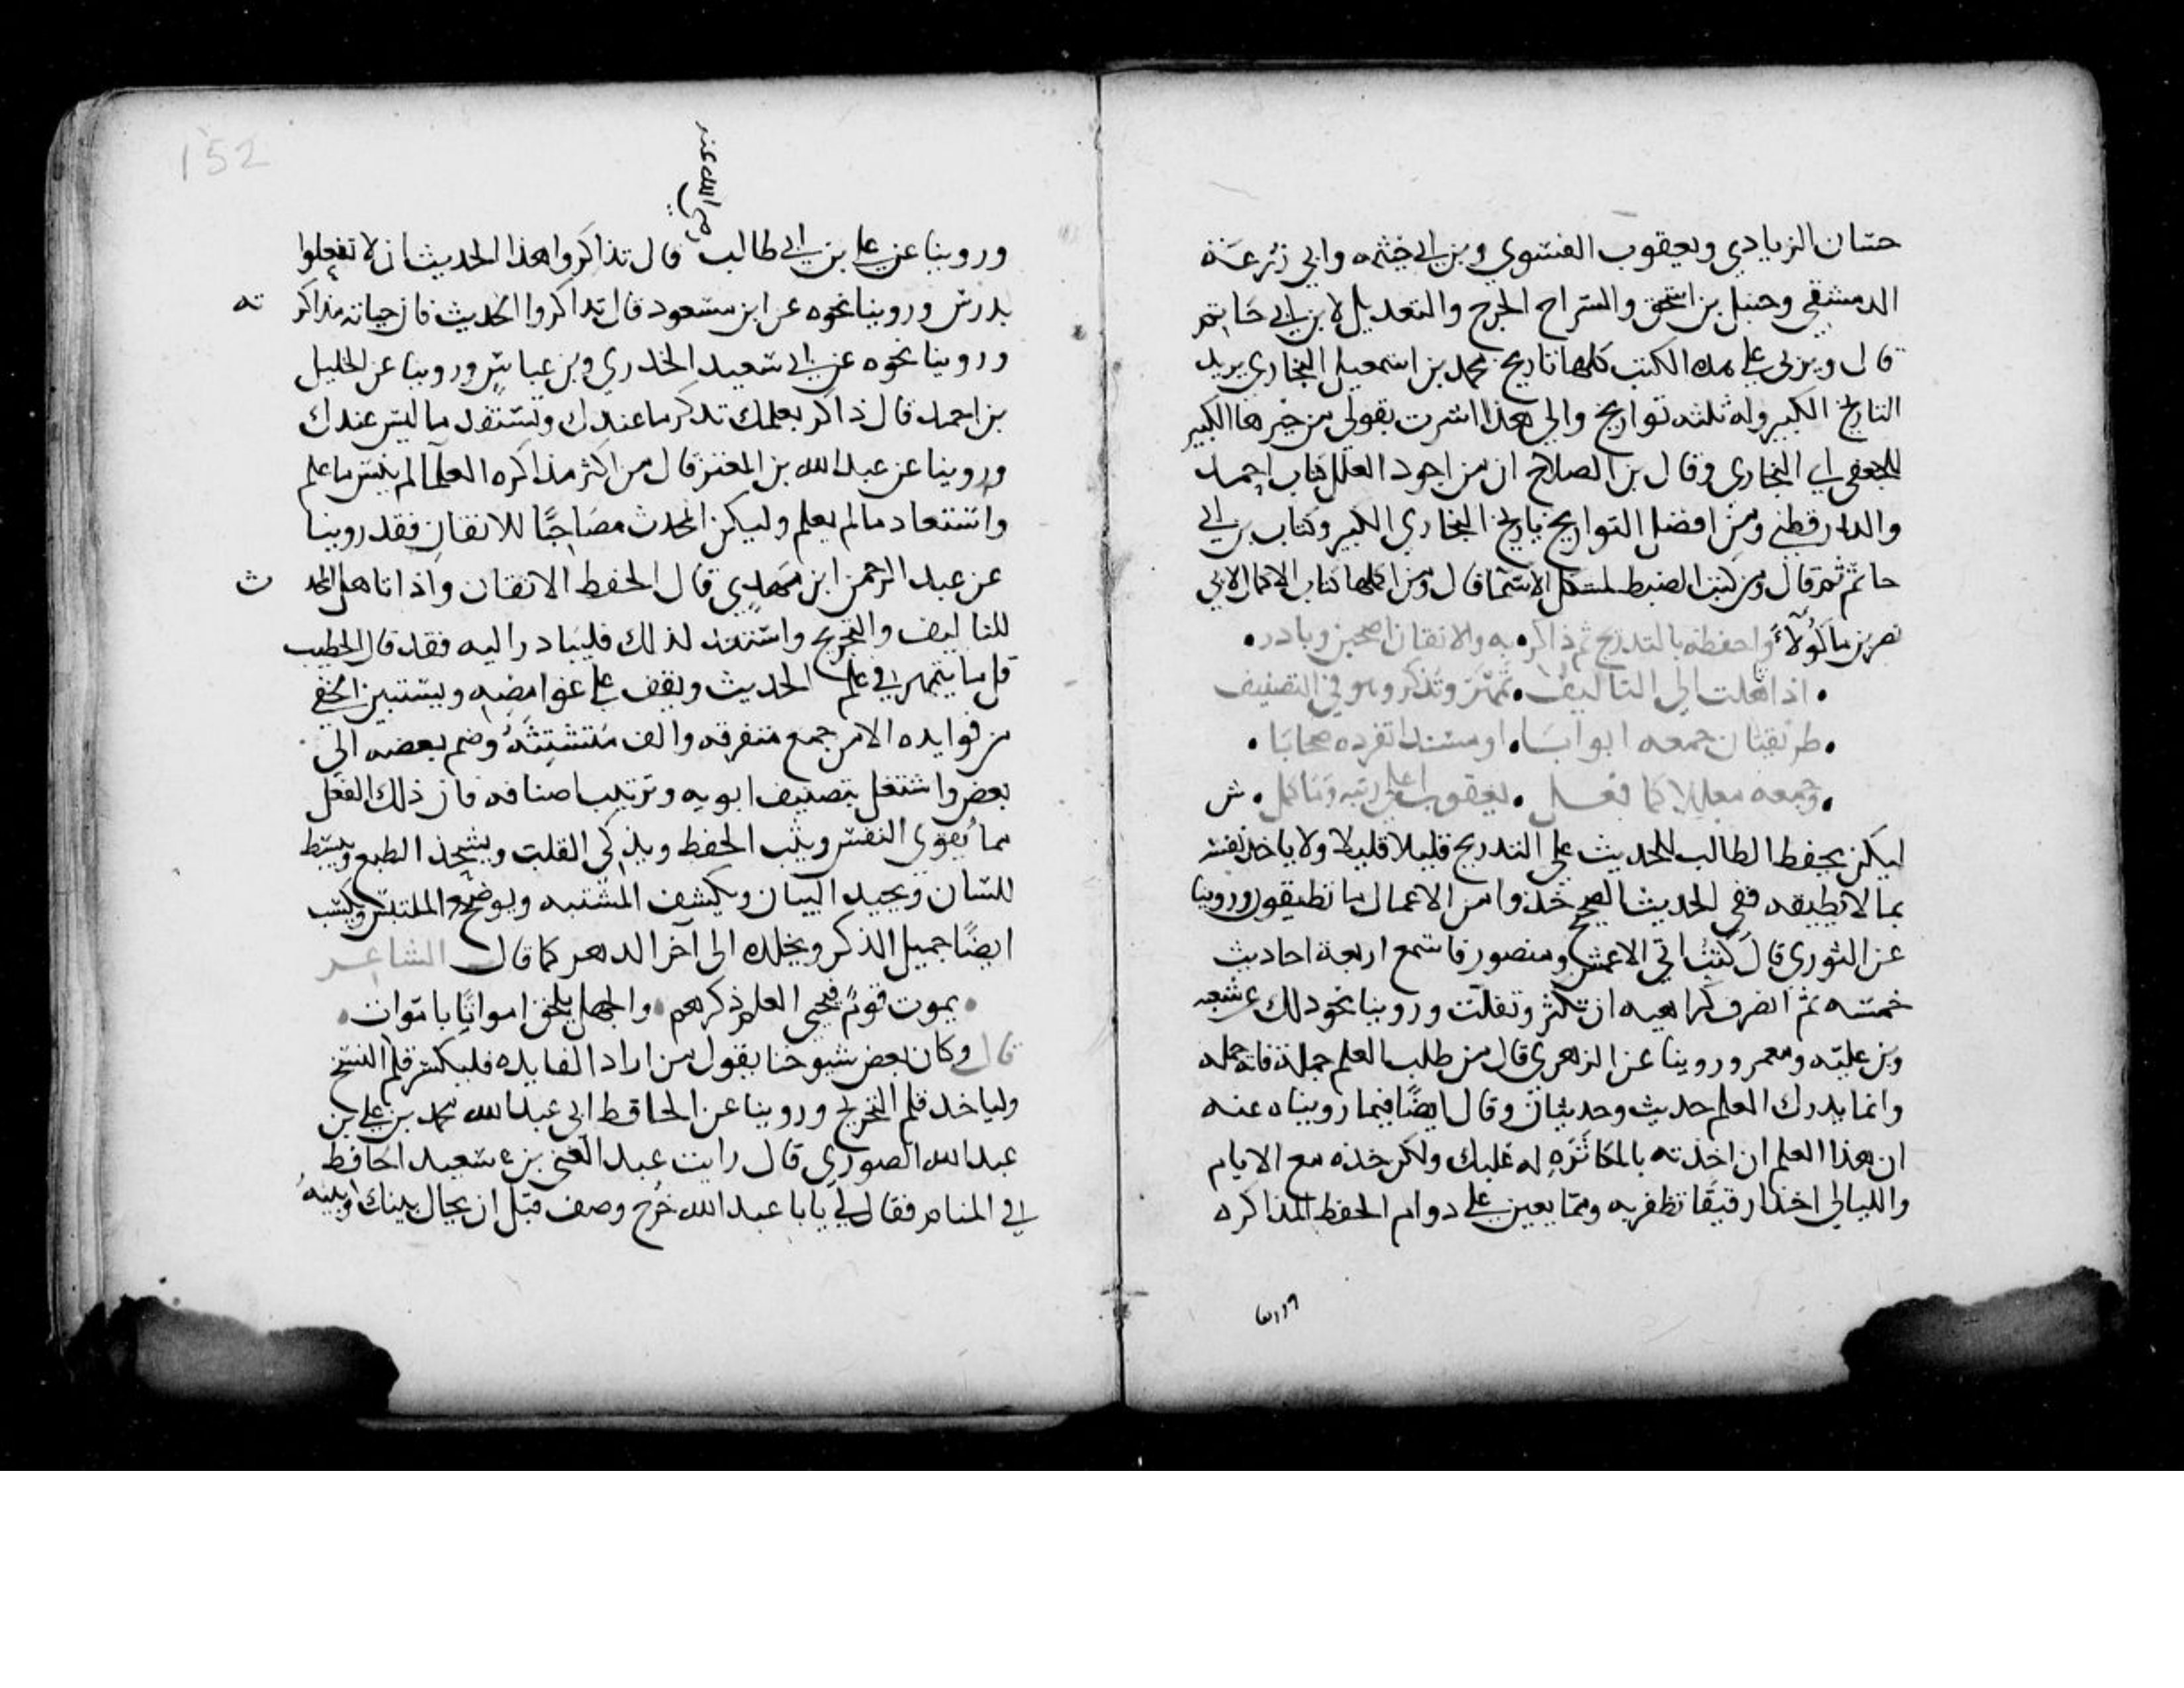 حسان الزيادي ويعقوب الفسوي وبن ابي خيثمه وابي زرعة
الدمشقي وحنبل بن اسحق والسراج الجرح والتعديل لابن ابي حاتم
قال ويربى على هذه الكتب كلها تاريخ محمد بن اسمعيل البخاري يريد
التاريخ الكبير وله ثلثه تواريخ والى هذا اشرت بقولى من خيرها الكبير
للجعفي اي البخارى وقال بن الصلاح ان من اجود العلل كتاب احمد
والدارقطني ومن افضل التواريخ تاريخ البخاري الكبير وكتاب بن ابي
حاتم ثم قال ومن كتب الضبط لمشكل الاسما قال ومن اكملها كتاب الاكمال لابي
نصر بن ماكولا واحفظه بالتدريج ثم ذاكر • به والاتقان اصحبن وبادر •
• اذا تاهلت الى التاليف • تمهر وتذكر وهو في التصنيف
• طريقتان جمعه ابوابا • او مسندا تفرده صحابا •
• وجمعه معللا كما فعل • يعقوب اعلى رتبه وما كمل • ش
ليكن يحفظ الطالب للحديث على التدريج قليلا قليلا ولا ياخذ نفسه
بما لا يطيقه ففي الحديث الصحيح خذوا من الاعمال ما تطيقون وروينا
عن الثوري قال كنت اتي الاعمش ومنصور فاسمع اربعة احاديث
خمسه ثم انصرف كراهيه ان تكثر وتفلت وروينا نحو ذلك عن شعبه
وبن عليه ومعمر وروينا عن الزهري قال من طلب العلم جملة فاته جمله
وانما يدرك العلم حديث وحديثان وقال ايضا فيما رويناه عنه
ان هذا العلم ان اخذته بالمكاثره له غلبك ولكن خذه مع الايام
والليالي اخذا رفيقا تظفر به ومما يعين على دوام الحفظ المذاكره
وروينا
رضي الله عنه
وروينا عن علي بن ابي طالب قال تذاكروا هذا الحديث ان لا تفعلوا
يدرس وروينا نحوه عن ابن مسعود قال تذاكروا الحديث فان حياته مذاكر ته
وروينا نحوه عن ابي سعيد الخدري وبن عباس وروينا عن الخليل
بن احمد قال ذاكر بعلمك تذكر ما عندك وتستفد ما ليس عندك
وروينا عن عبد الله بن المعتز قال من اكثر مذاكره العلما لم ينس ما علم
واستفاد ما لم يعلم وليكن المحدث مصاحبا للاتقان فقد روينا
عن عبد الرحمن ابن مهدي قال الحفظ الاتقان واذا تاهل المحد ث
للتاليف والتخريج واستعد لذلك فليبادر اليه فقد قال الخطيب
قل ما يتمهر في علم الحديث ويقف على غوامضه ويستبين الخفي
من فوايده الا من جمع متفرقه والف متشتته وضم بعضه الى
بعض واشتغل بتصنيف ابوبه وترتيب اصنافه فان ذلك الفعل
مما يقوى النفس ويثبت الحفظ ويذكى القلب ويشحذ الطبع ويبسط
للسان ويجيد البيان ويكشف المشتبه ويوضح الملتبس ويكسب
ايضا جميل الذكر ويخلده الى آخر الدهر كما قال الشاعر
• يموت قوم فيحيى العلم ذكرهم • والجهل يلحق امواتا باموات •
قال وكان بعض شيوخنا يقول من اراد الفايده فليكسر قلم النسخ
ولياخذ قلم التخريج وروينا عن الحافظ ابي عبد الله محمد بن علي بن
عبد الله الصوري قال رايت عبد الغني بن سعيد الحافظ
في المنام فقال لي يابا عبد الله خرج وصنف قبل ان يحال بينك وبينه
152